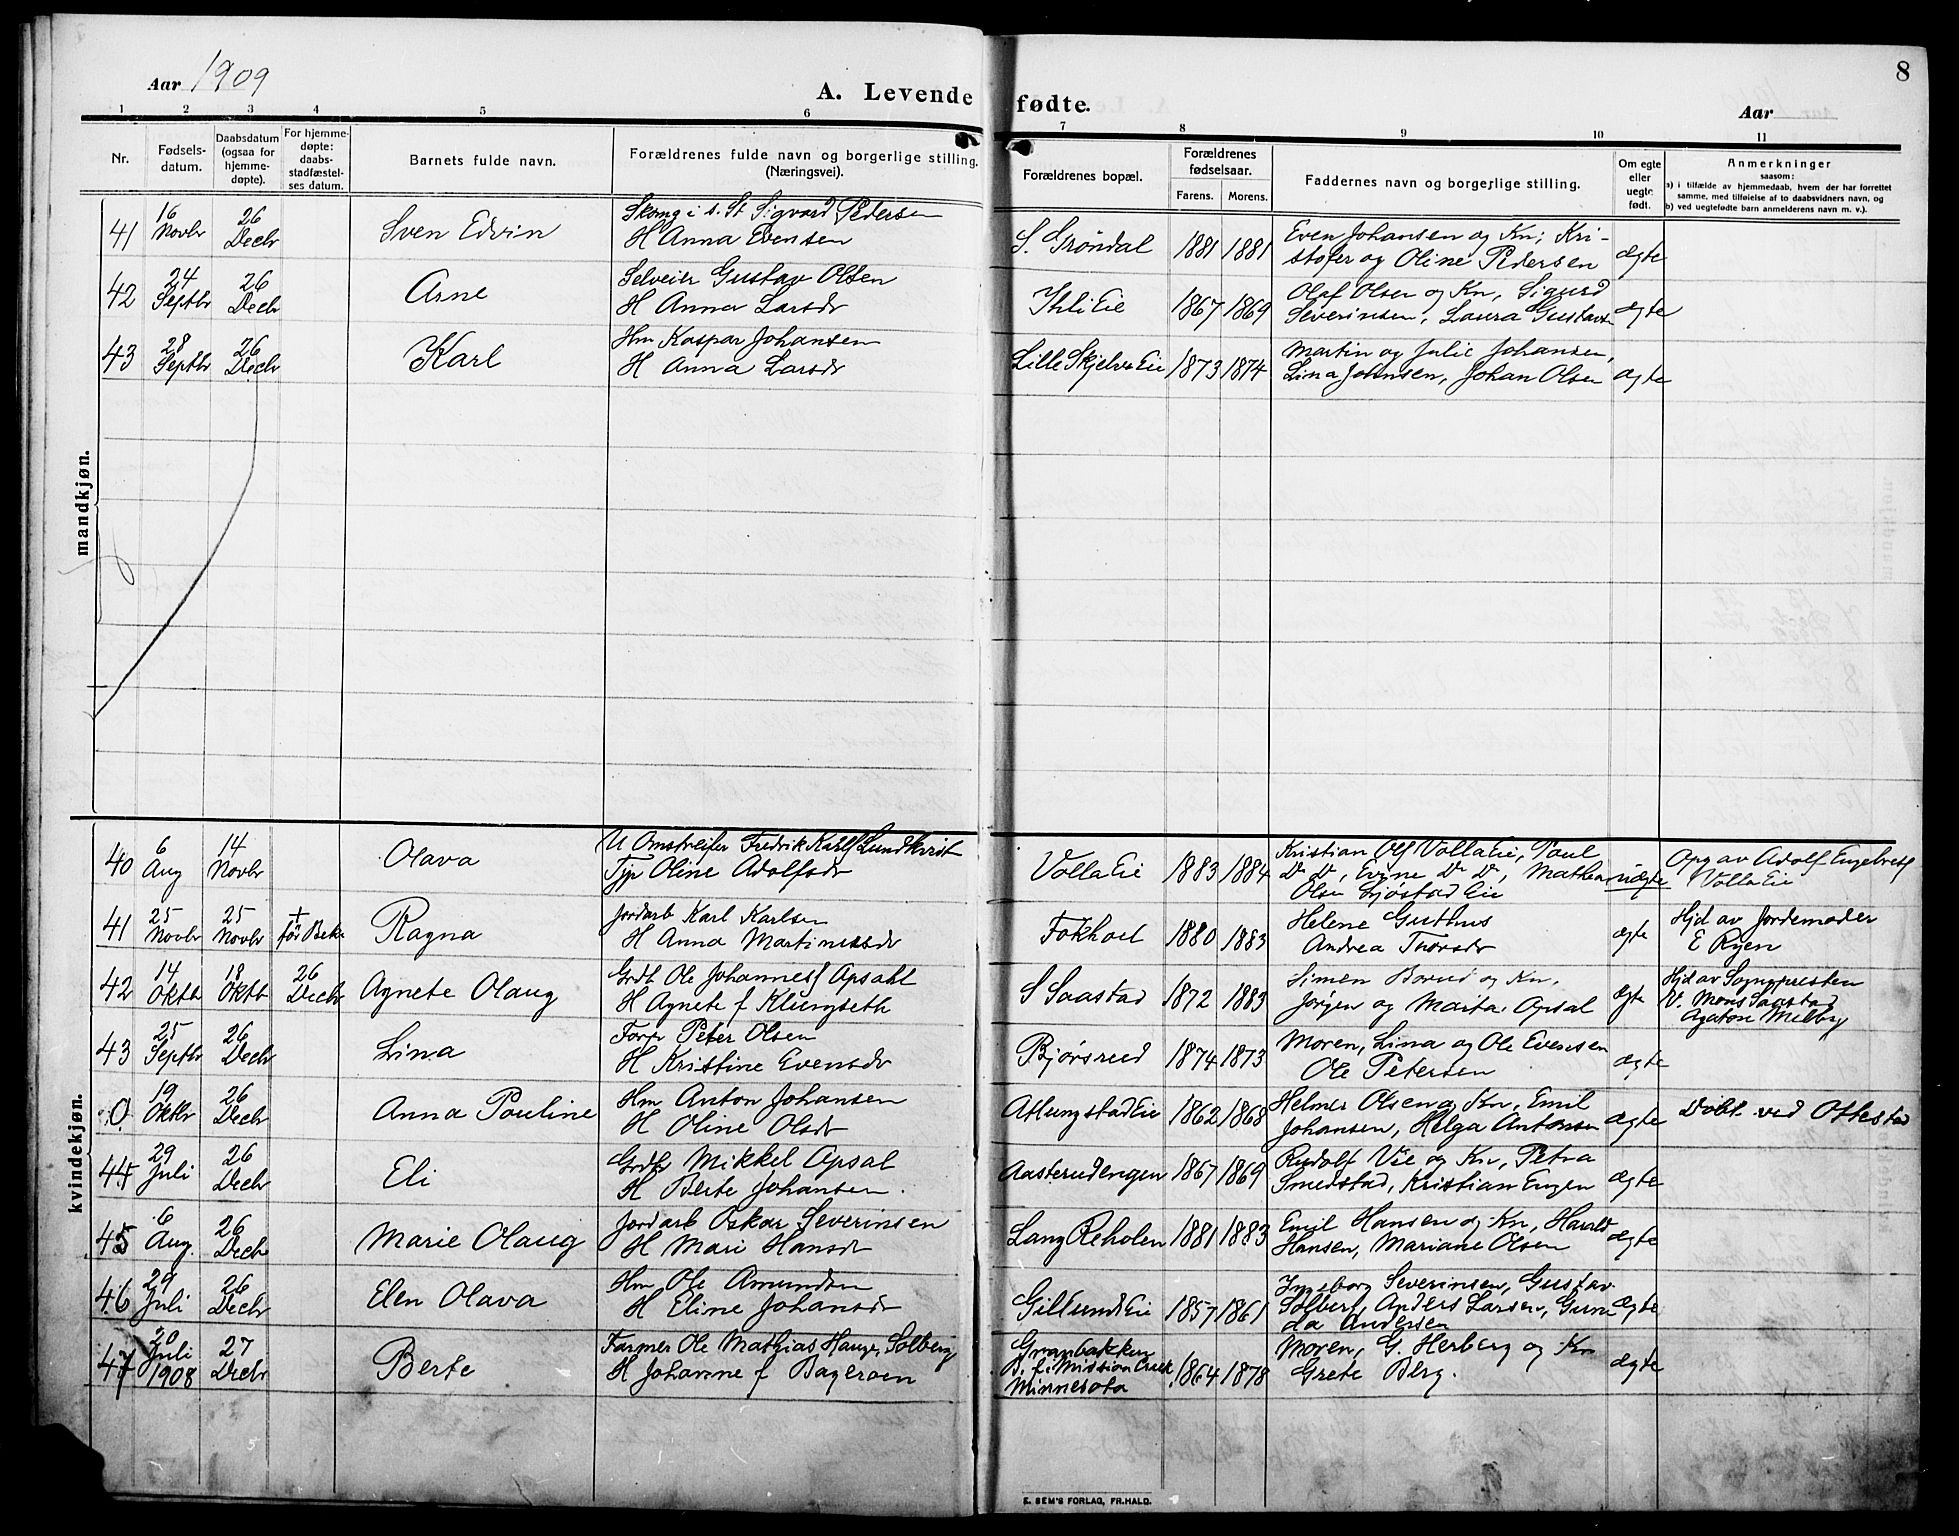 Aar 1909
A. Levende fødte.
Aar
8
1 2 3 4 5 6 7 8 9 10 11
Nr.
Fødselsdatum.
Daabsdatum (ogsaa for hjemmedøpte).
For hjemmedøpte: daabsstadfæstelses datum.
Barnets fulde navn.
Forældrenes fulde navn og borgerlige stilling. (Næringsvei).
Forældrenes bopæl.
Forældrenes fødselsaar.
Farens. Morens.
Faddernes navn og borgerlige stilling.
Om egte eller uegte født.
Anmerkninger
saasom:
a) i tilfælde av hjemmedaab, hvem der har forrettet
samme, med tilføielse af to daabsvidners navn, og
b) ved uegtefødte barn anmelderens navn m. v.).
mandkjøn.
41 16 Novbr 26 Decbr Sven Edvin Skomg i s. St Sigvard Pedersen
H Anna Evensen S. Grøndal 1881 1881 Even Johansen og Kn; Kri-
stofer og Oline Pedersen ægte
42 24 Septbr 26 Decbr Arne Selveier Gustav Olsen
H Anna Larsdr Ihli Eie 1867 1869 Olaf Olsen og Kn, Sigurd
Severinsen, Laura Gustavs ægte
43 28 Septbr 26 Decbr Karl Hm Kaspar Johansen
H Anna Larsdr Lille Skjelve Eie 1873 1874 Martin og Julie Johansen,
Lina Johnsen, Johan Olsen ægte
kvindekjøn.
40 6 Aug 14 Novbr Olava U Omstreifer Fredrik Karlf Lundkvist
Tyr Oline Adolfsdr Volla Eie 1883 1884 Kristian Olf Volla Eie, Paul
Do Do, Evine Do Do, Mathea
Olsen Sjøstad Eie uægte Opg av Adolf Engebretf
Volla Eie
41 25 Novbr 25 Novbr + før Bekr Ragna Jordarb Karl Karlsen
H Anna Martinusdr Fokhol 1880 1883 Helene Gusthus
Andrea Thorsdr ægte Hjd av Jordemoder
E Ryen
42 14 Oktb 18 Oktb 26 Decbr Agnete Olaug Grdb Ole Johannesf Opsahl
H Agnete f Klungseth S Saastad 1872 1883 Simen Borud og Kn,
Jørgen og Marta Opsal ægte Hjd av Sognpresten
V. Mons Saastad
Agaton Melby
43 25 Septbr 26 Decbr Lina Forp Peter Olsen
H Kristine Evensdr Bjørsrud 1874 1873 Moren, Lina og Ole Evensen
Ole Petersen ægte
0 19 Oktbr 26 Decbr Anna Pauline Hm Anton Johansen
H Oline Olsdr Atlungstad Eie 1862 1868 Helmer Olsen og Kn, Emil
Johansen, Helga Antonsen ægte Døbt ved Ottestad
44 29 Juli 26 Decbr Eli Grdbr Mikkel Opsal
H Berte Johansen. Aasterudengen 1867 1869 Rudolf Vie og Kn, Petra
Smedstad, Kristian Engen ægte
45 6 Aug. 26 Decbr Marie Olaug Jordarb Oskar Severinsen
H Mari Hansdr Lang Reholen 1881 1883 Emil Hansen og Kn, Harald
Hansen, Mariane Olsen ægte
46 29 Juli 26 Decbr Elen Olava Hm Ole Amundsen
H Eline Johansdr Gillund Eie 1857 1861 Ingeborg Severinsen, Gustav
Solberg, Anders Larsen, Gun
da Andersen ægte
47 20 Juli 1908 27 Decbr Berte Farmer Ole Mathias Hansen Solberg
H Johanne f Bageroen Granbakken
B. f. Mission Creek
Minnesota 1864 1878 Moren, G. Herberg og Kn
Grete Berg. ægte
E. SEM'S FORLAG, FR.HALD.